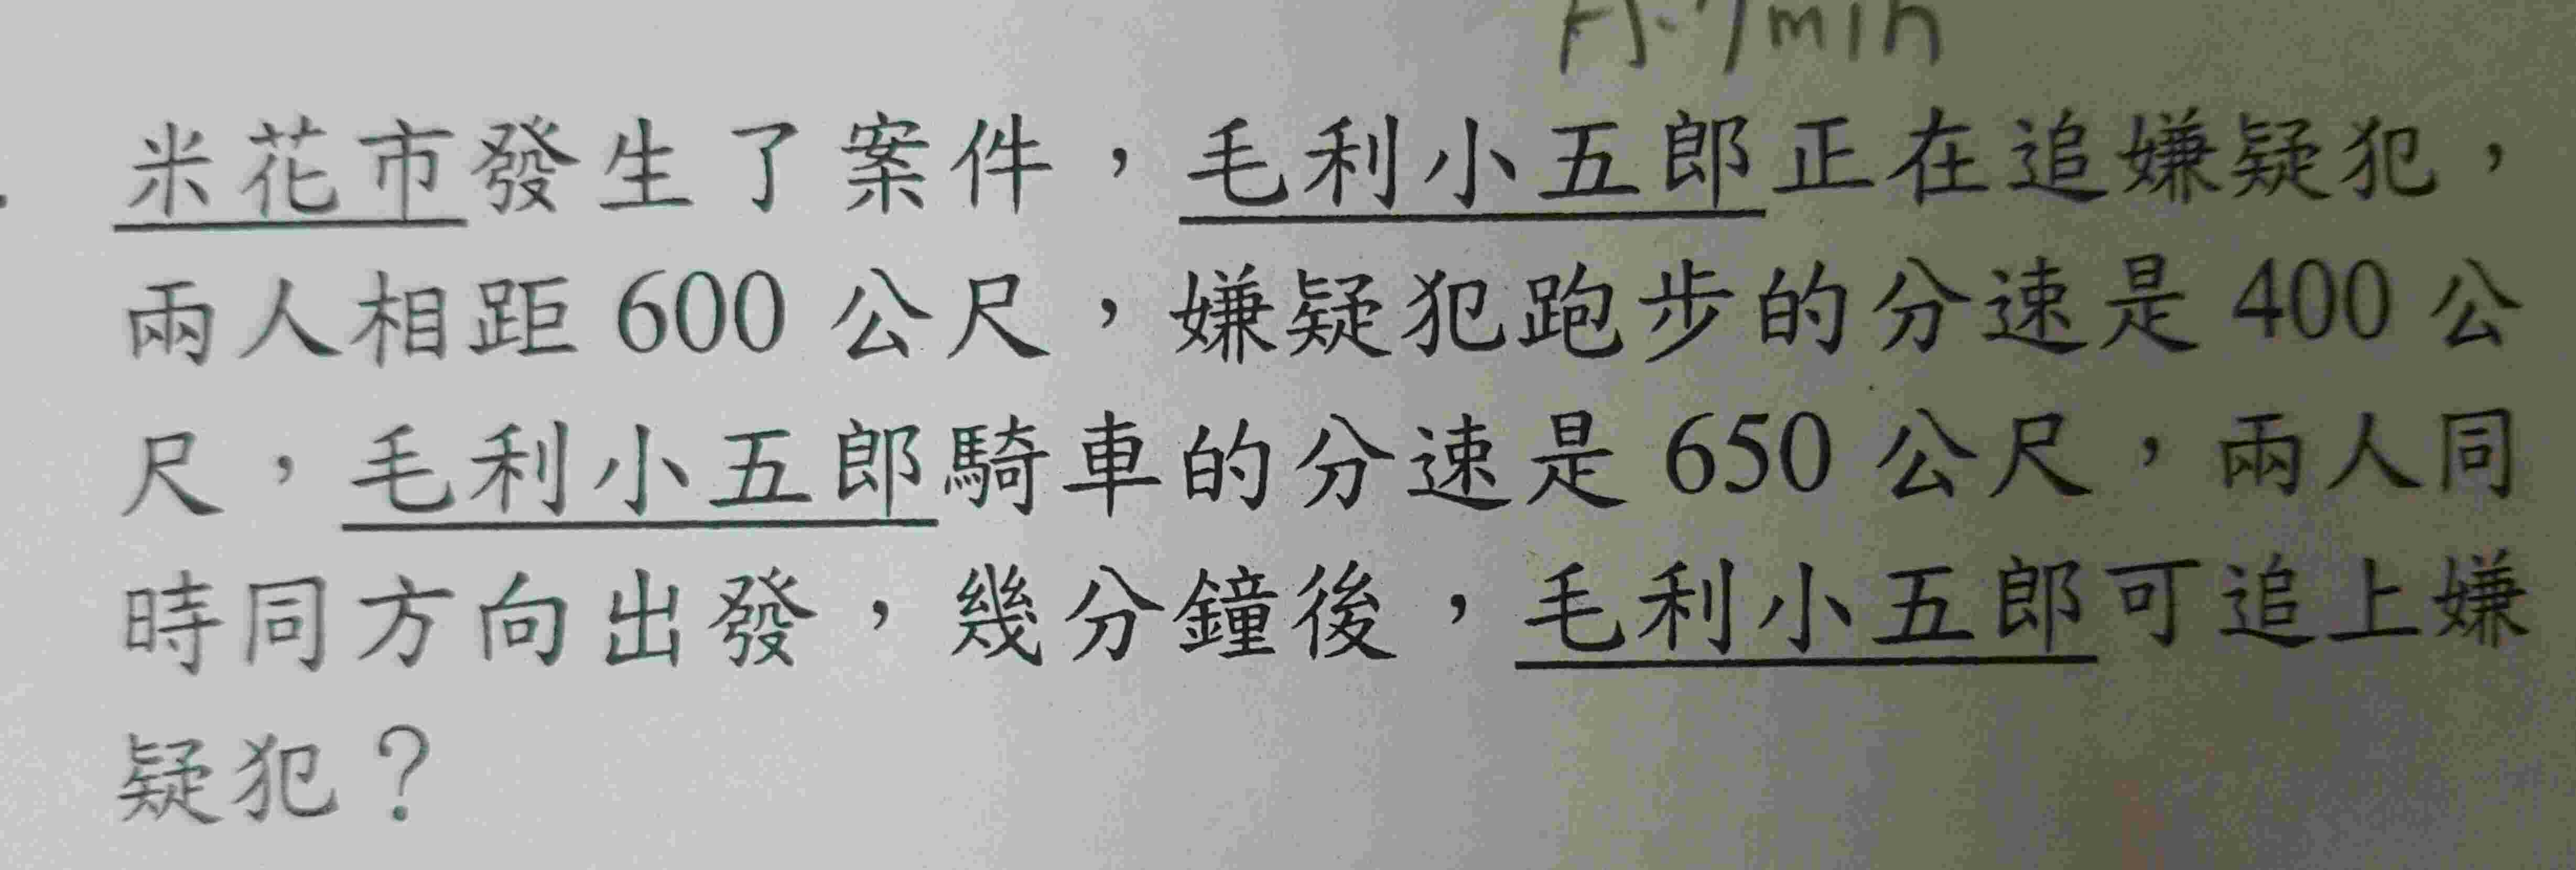 /min
米花市發生了案件，毛利小五郎正在追嫌疑犯，
兩人相距 600 公尺，嫌疑犯跑步的分速是 400 公
尺，毛利小五郎騎車的分速是 650 公尺，兩人同
時同方向出發，幾分鐘後，毛利小五郎可追上嫌
疑犯？